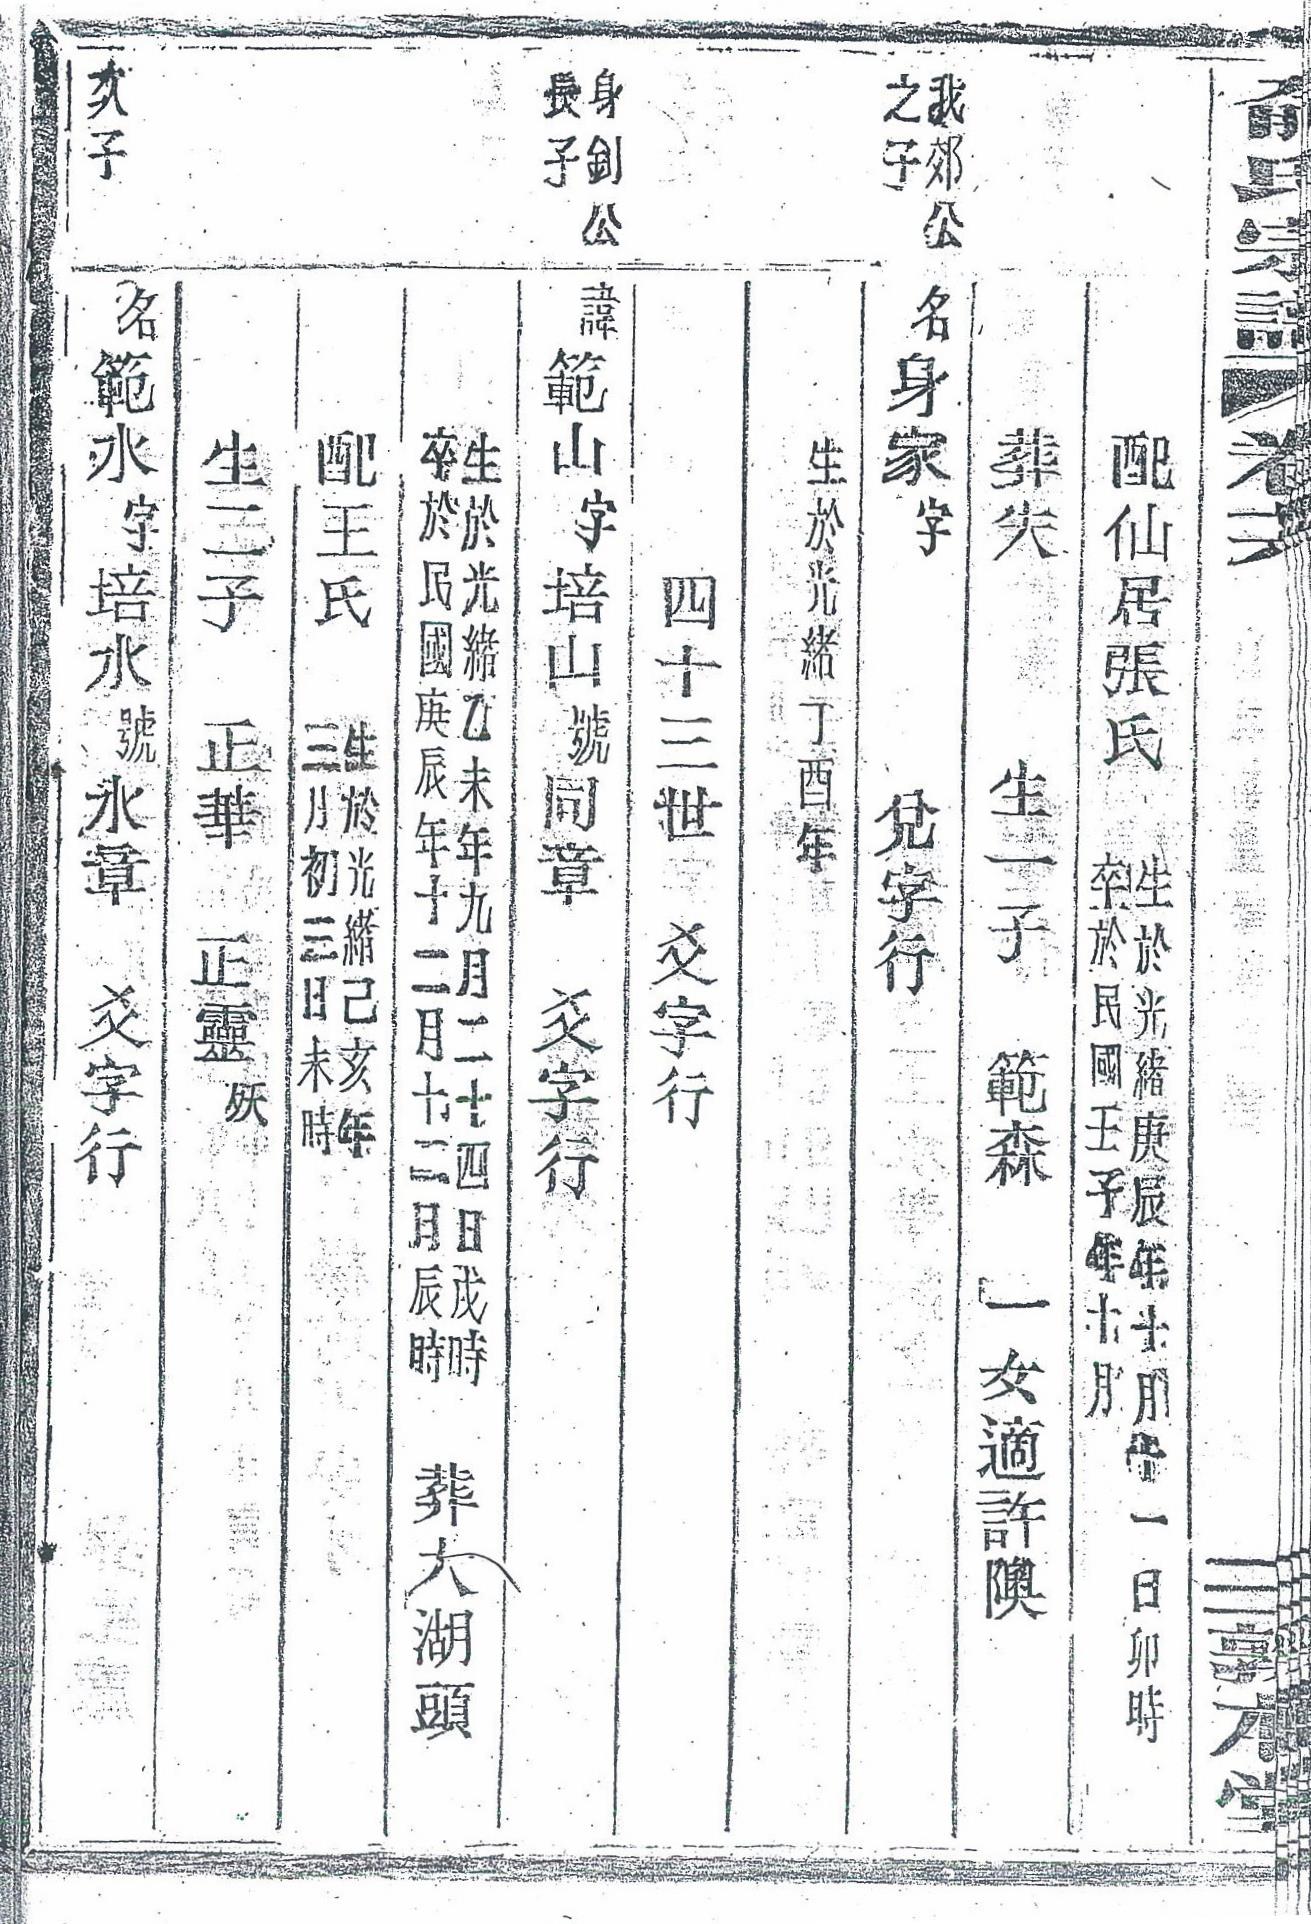 氏宗譜 卷六
配仙居張氏 生於光緒庚辰年十月十一日卯時
卒於民國壬子年十月
葬失 生一子 範森 一女適許隩
我郊公
之子
名身家字 兌字行
生於光緒丁酉年
四十三世 爻字行
身釗公
長子
諱範山字培山號同章 爻字行
生於光緒乙未年九月二十四日戌時
卒於民國庚辰年十二月十二月辰時 葬大湖頭
配王氏 生於光緒己亥年
三月初三日未時
生二子 正華 正靈 殀
次子
名範水字培水號氷章 爻字行